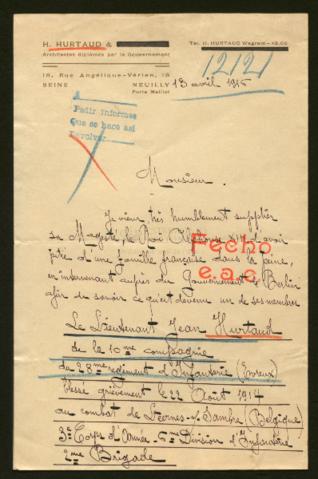 H. HURTAUD &
Architectes diplômés par le Gouvernement
Tél. H. HURTAUD Wagram
18, Rue Angélique-Vérien, 18
SEINE NEUILLY
Porte Maillot
1212
13 avril 1915
Pedir informes
que se hace asi
devolver
Monsieur.
Je viens très humblement supplier
sa Majesté, le Roi Alphonse XIII, d'avoir
pitié d'une famille française dans la peine,
en intervenant auprès du Gouvernement de Berlin
afin de savoir ce qu'est devenu un de ses membres
Fecho
e.a.c
Le Lieutenant Jean Hurtaud
de la 10me compagnie
du 28me régiment d'Infanterie (Evreux)
blessé grièvement le 22 Août 1914
au combat de Sambre (Belgique)
3e Corps d'Armée - 6me Division d'Infanterie
Brigade